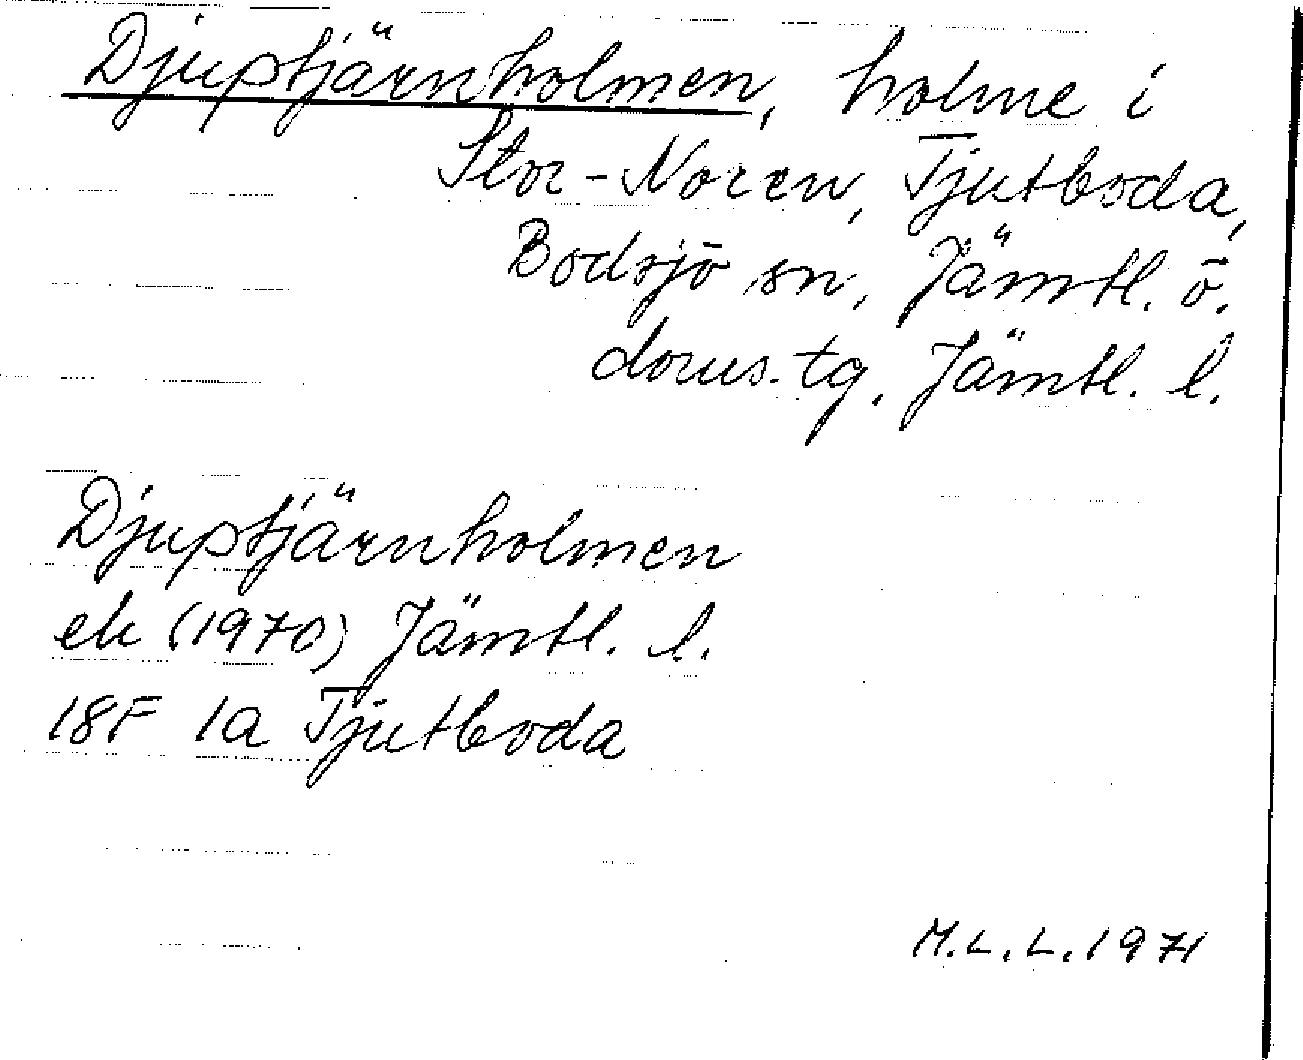 Djuptjärnholmen, holme i
Stor-Noren, Tjutboda,
Bodsjö sn, Jämtl. ö.
doms. tg, Jämtl. l.
Djuptjärnholmen
ek (1970) Jämtl. l.
18F 1a Tjutboda
M.L.L. 1971